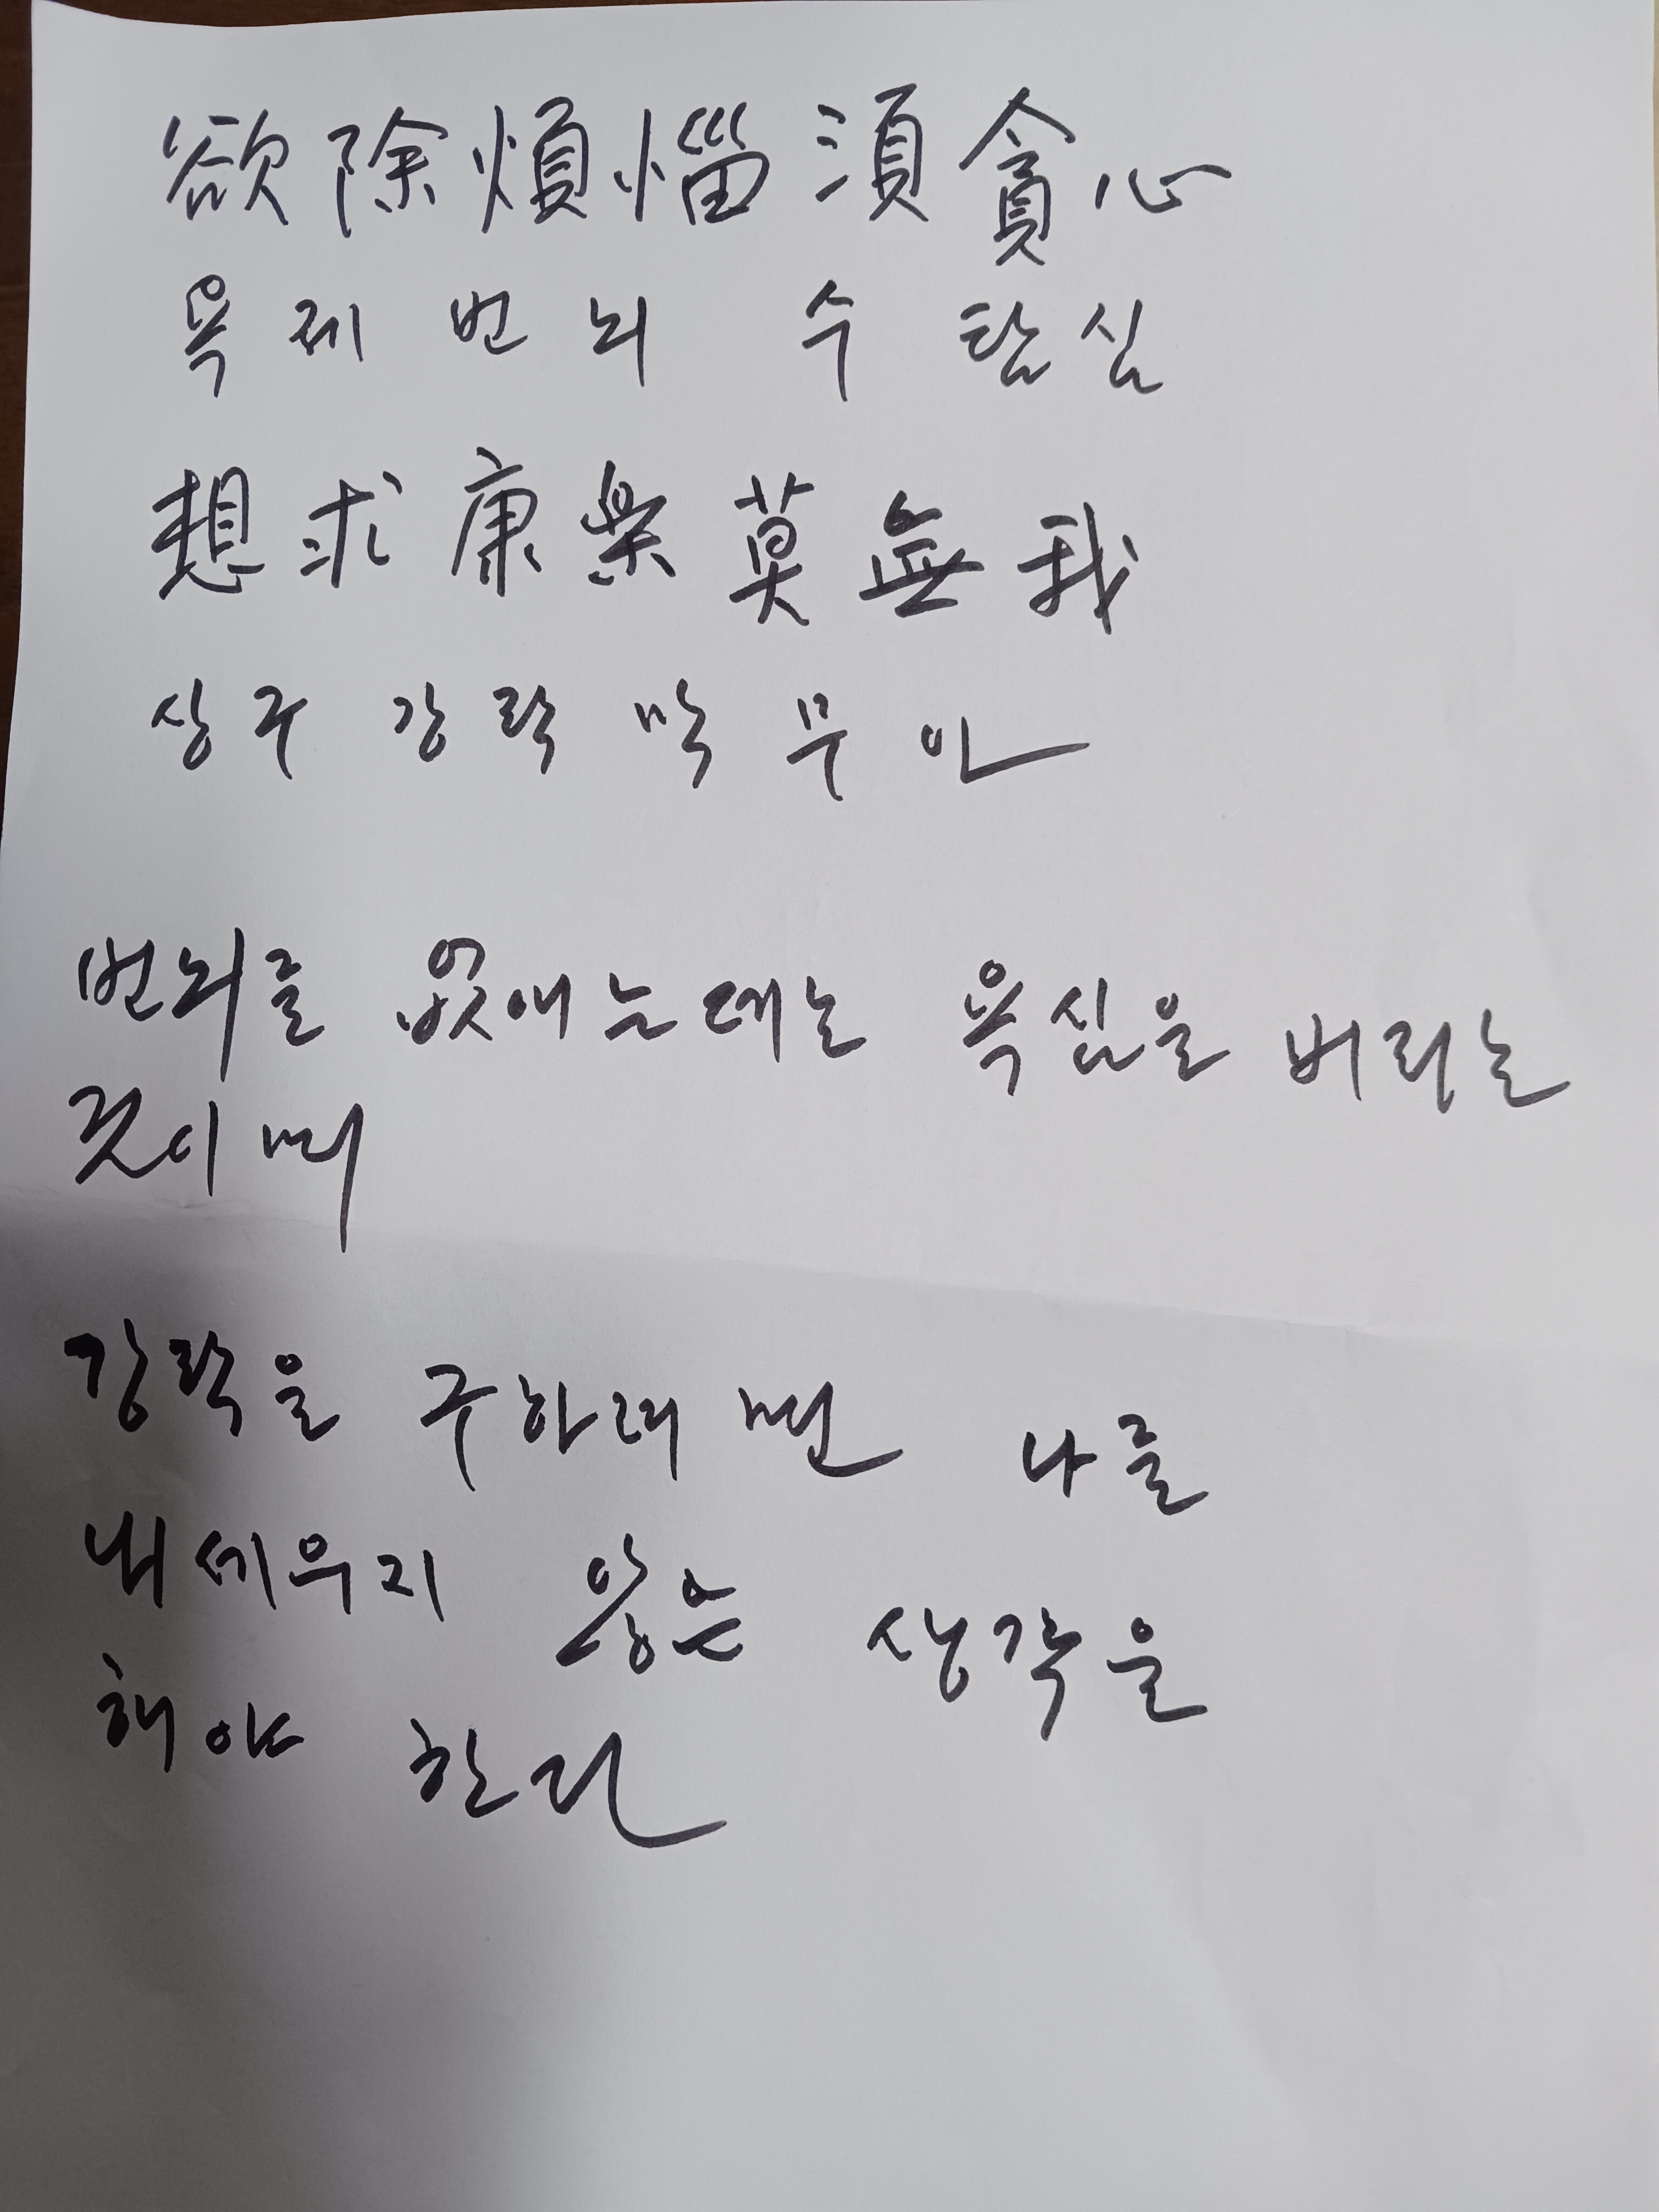 欲除煩惱須貪心
욕제번뇌 수 탐심
想求康樂莫無我
상구 강락 막 무 아
번뇌를 없애는데는 욕심을 버리는
것이며
강락을 구하려면 나를
내세우지 않은 생각을
해야 한다